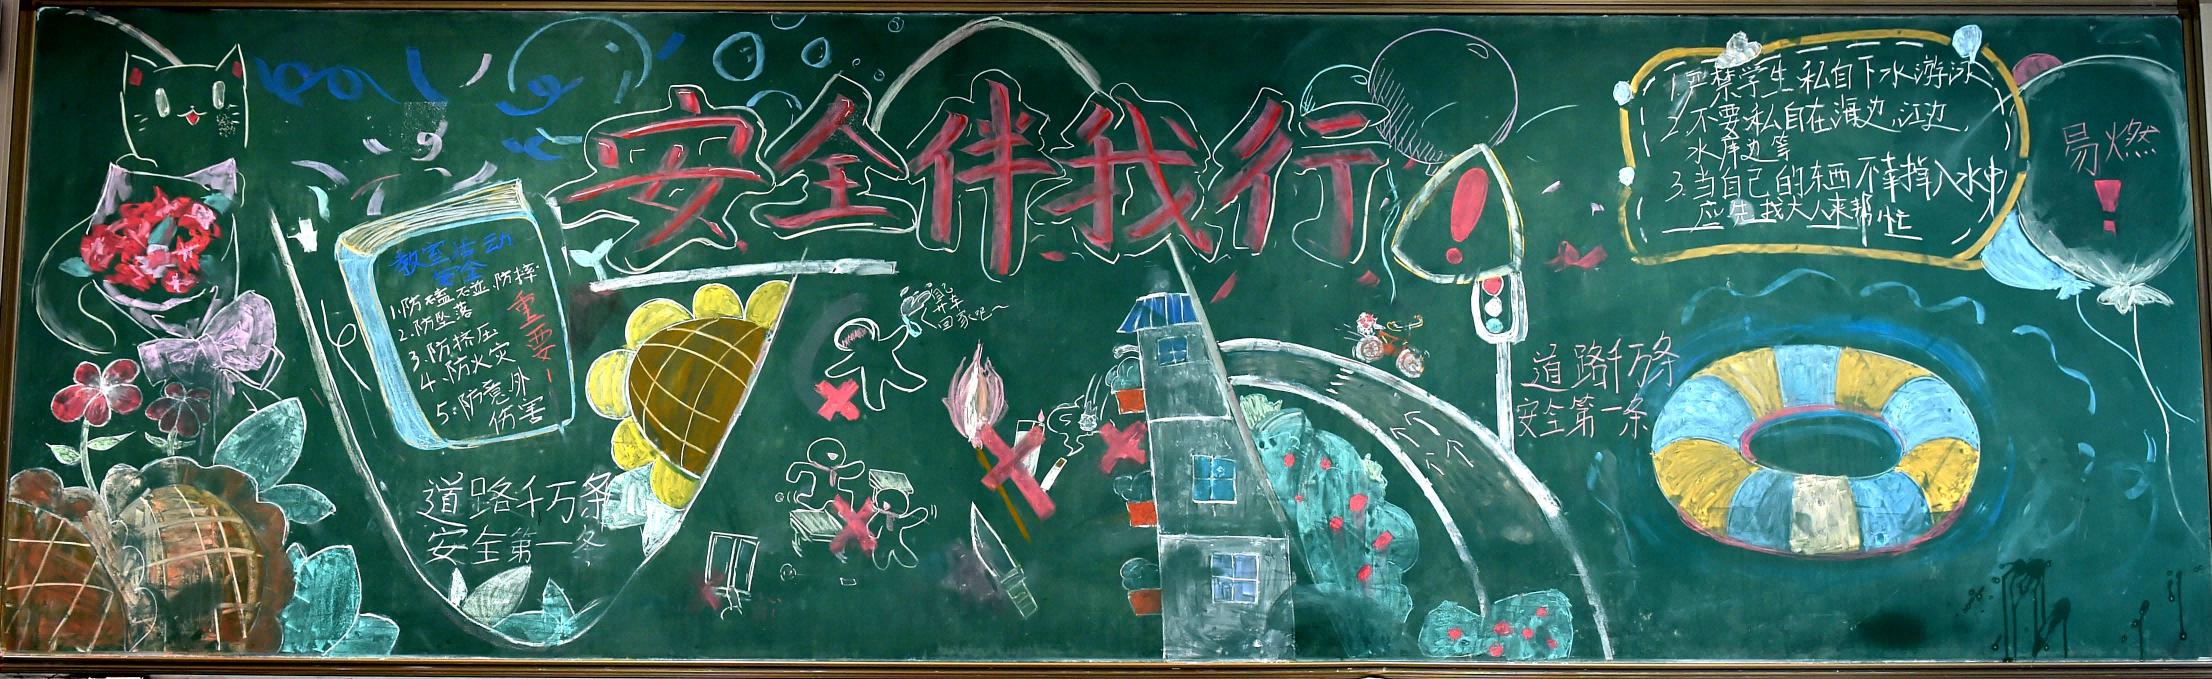 安全伴我行
教室活动
安全
1.防磕、碰、防摔
2.防坠落
3.防挤压
4.防火灾
5.防意外
伤害
重要!
道路千万条
安全第一条
自己
开车
回家吧~
道路千万条
安全第一条
1.严禁学生私自下水游泳
2.不要私自在海边,江边,
水库边等
3.当自己的东西不幸掉入水中
应先找大人来帮忙
易燃
!